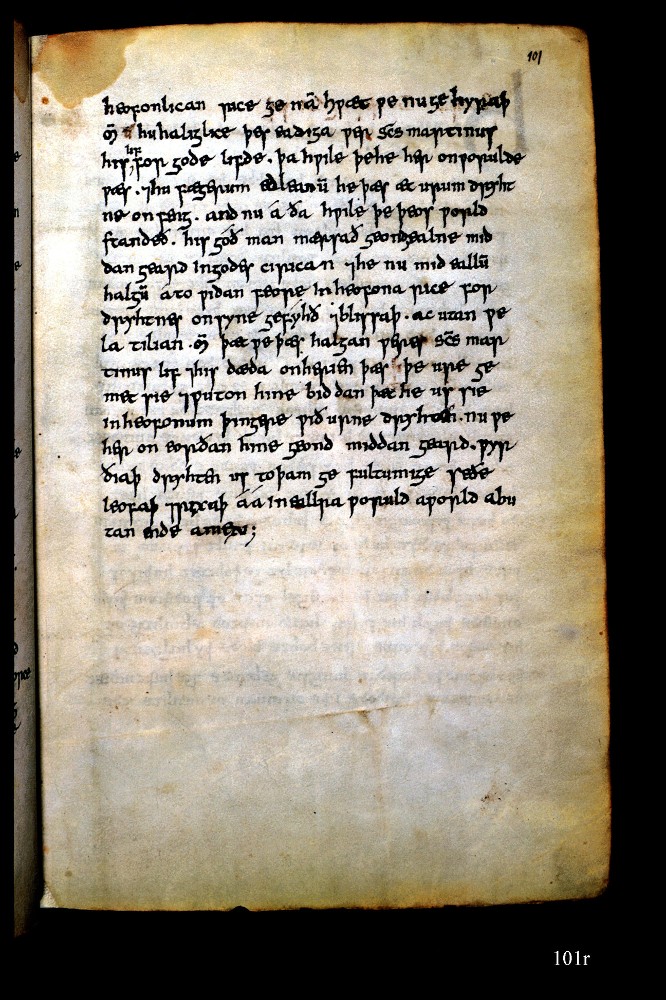 101
heofonlican rice ge nā hƿæt ƿe nu gehyraþ
ꝥ hu haliglice þes eadiga ƿer scs martinus
his lif for gode lifde. þa hƿile þe he her on ƿorulde
ƿæs. ⁊ hu fægerum edleanū he þæs æt urum dryht
ne onfeng. and nu á ða hƿile þe þeos ƿorld
standeð. his gód man mærsað geond ealne mid
dangeard in godes ciricean ⁊ he nu mid eallū
halgū á to ƿidan feore in heofona rice for
dryhtnes onsyne gefyhð ⁊ blissaþ. ac utan ƿe
la tilian. ꝥ þæt ƿe þæs halgan ƿeres scs mar
tinus lif ⁊ his dæda onherien þæs þe ure ge
met sie ⁊ ƿuton hine biddan þæt he us sie
in heofonum þingere ƿið urne dryhten. nu ƿe
her on eorðan hine geond middangeard. ƿyr
ðiaþ dryhten us to þam gefultumige se ðe
leofaþ ⁊ rixaþ áá in ealra ƿoruld aƿorld abu
tan ende amen;
101r